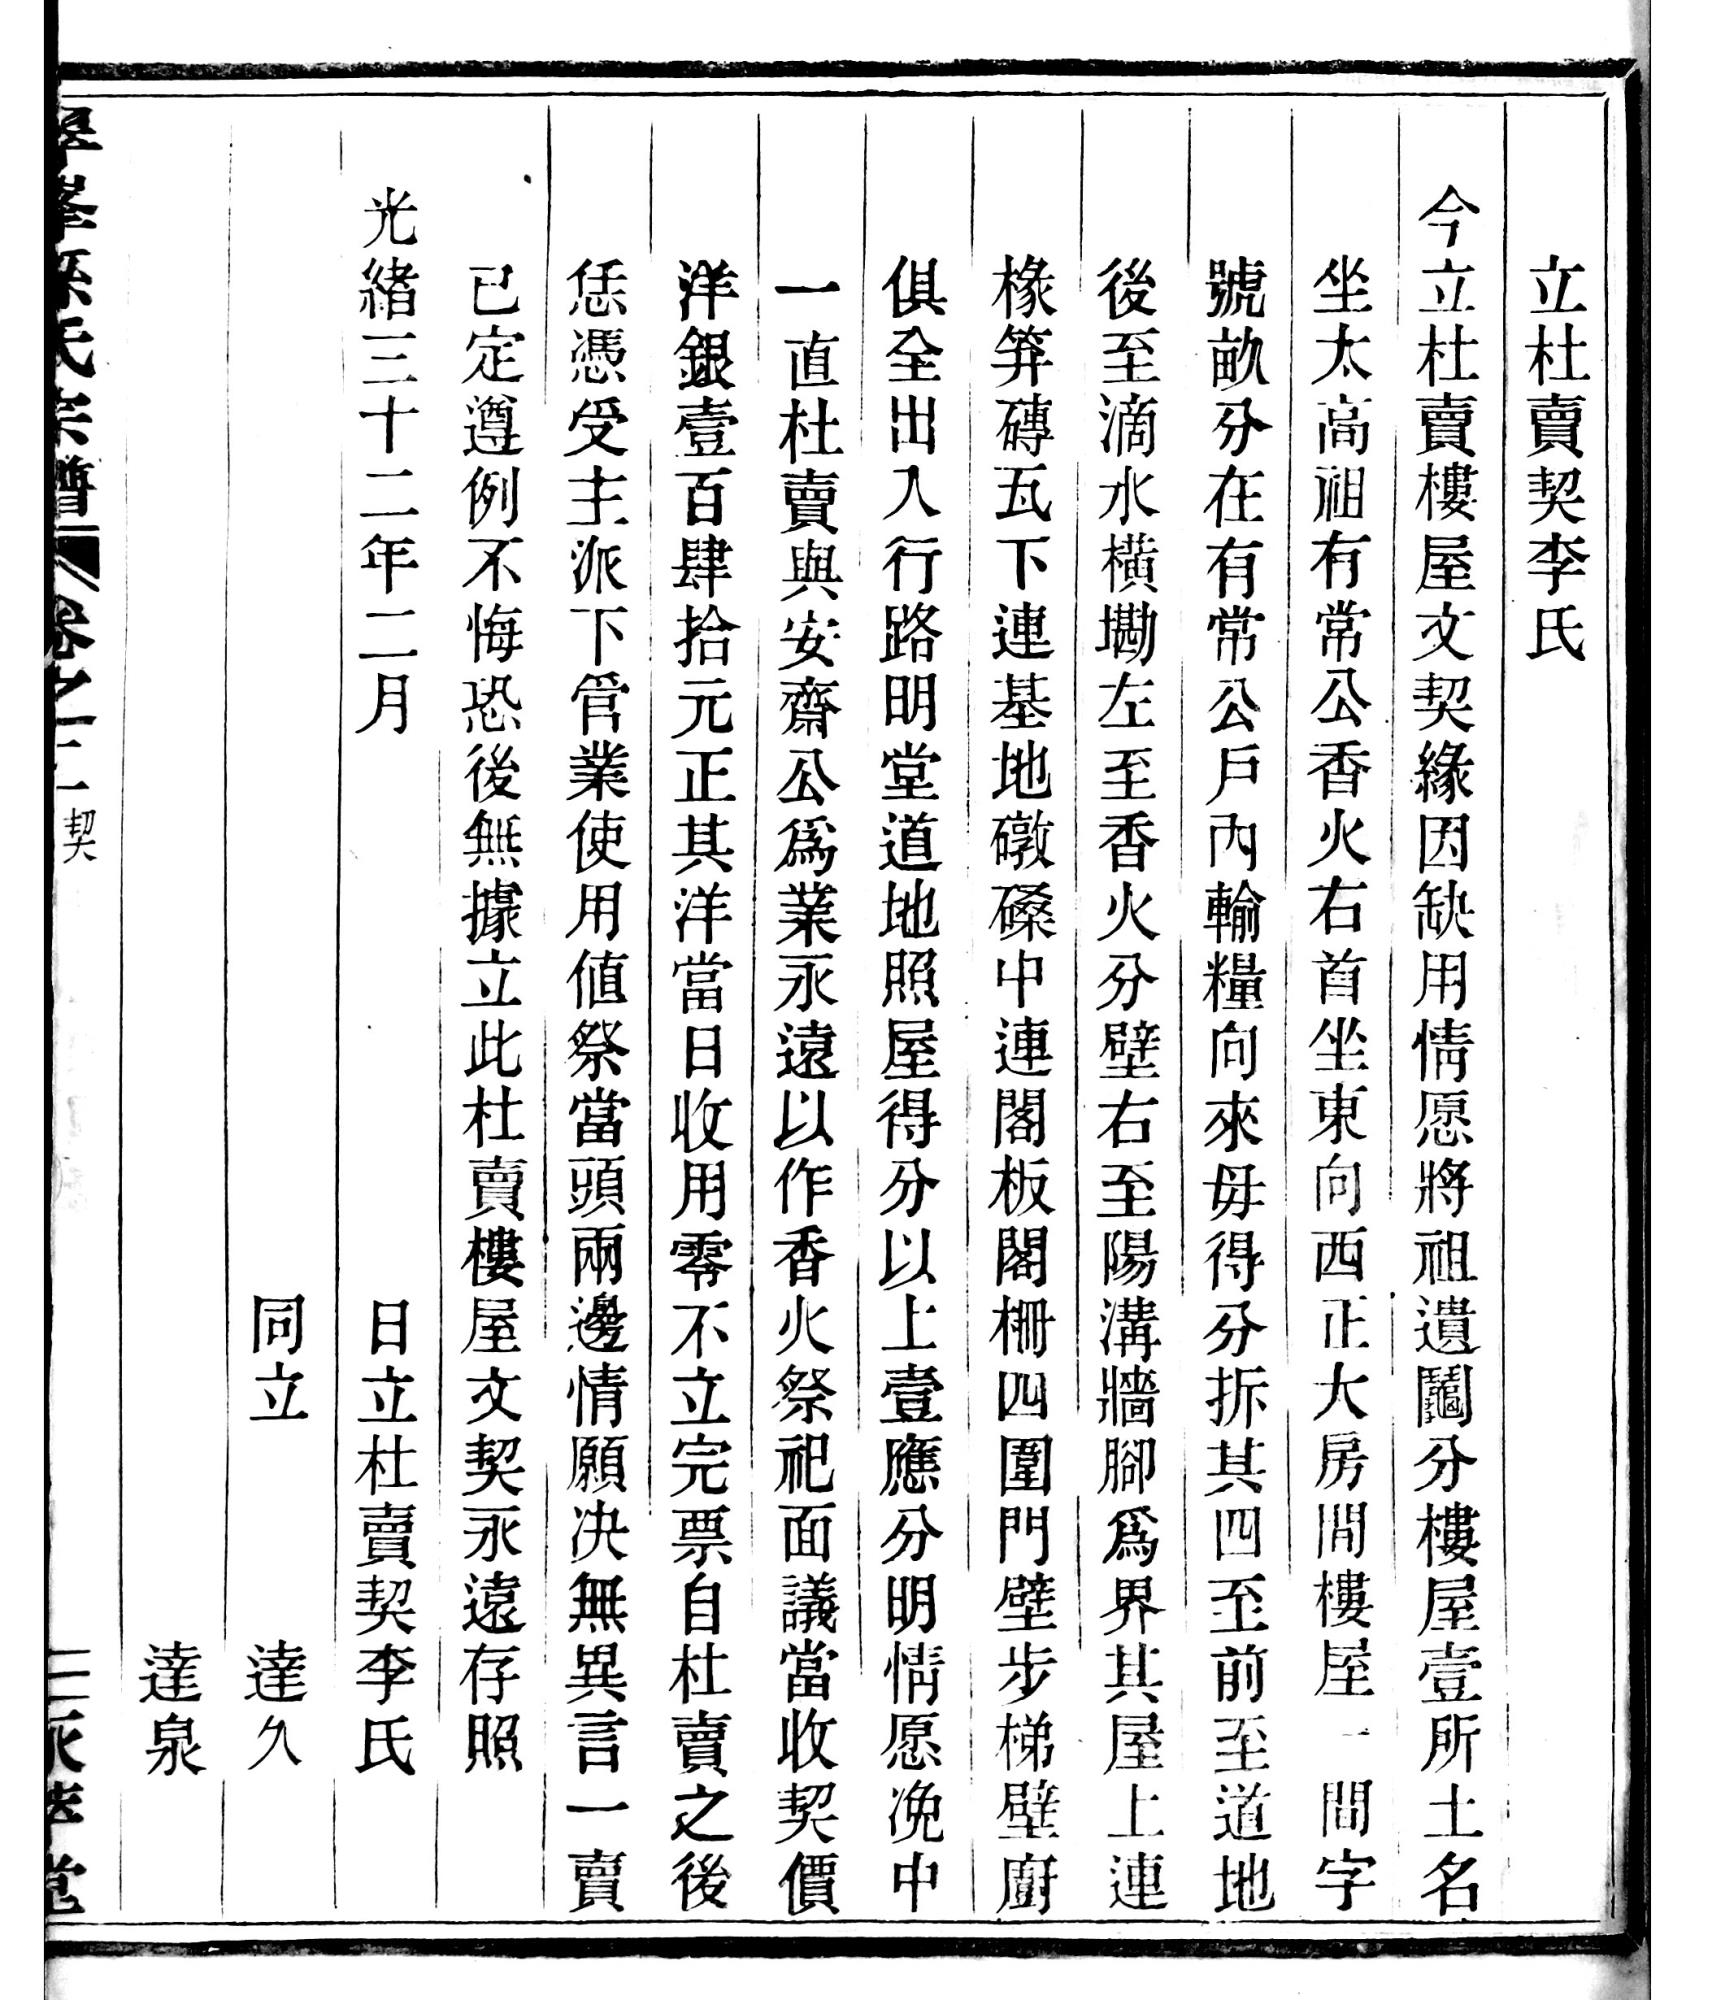 立杜賣契李氏
今立杜賣樓屋文契緣因缺用情愿將祖遺鬮分樓屋壹所土名
坐太高祖有常公香火右首坐東向西正大房間樓屋一間字
號畝分在有常公戶內輸糧向來毋得分拆其四至前至道地
後至滴水橫墈左至香火分壁右至陽溝牆腳爲界其屋上連
椽箅磚瓦下連基地礅磉中連閣板閣柵四圍門壁步梯壁廚
俱全出入行路明堂道地照屋得分以上壹應分明情愿凂中
一直杜賣與安齋公爲業永遠以作香火祭祀面議當收契價
洋銀壹百肆拾元正其洋當日收用零不立完票自杜賣之後
恁憑受主派下管業使用值祭當頭兩邊情願決無異言一賣
已定遵例不悔恐後無據立此杜賣樓屋文契永遠存照
光緒三十二年二月 日立杜賣契李氏
同立 達久
達泉
氏宗譜 卷之十二 契 二 永萃堂